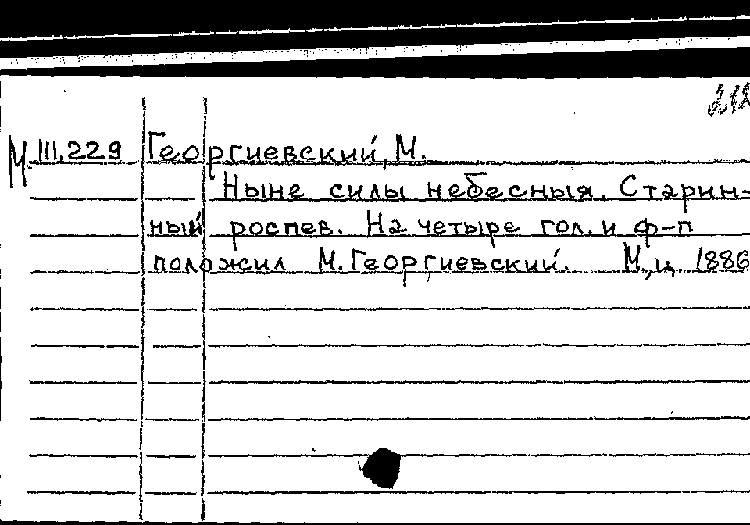 218
М III.229 Георгиевский, М.
Ныне силы небесныя. Старин-
ный роспев. На четыре гол. и ф-п
положил М. Георгиевский. М, ц. 1886